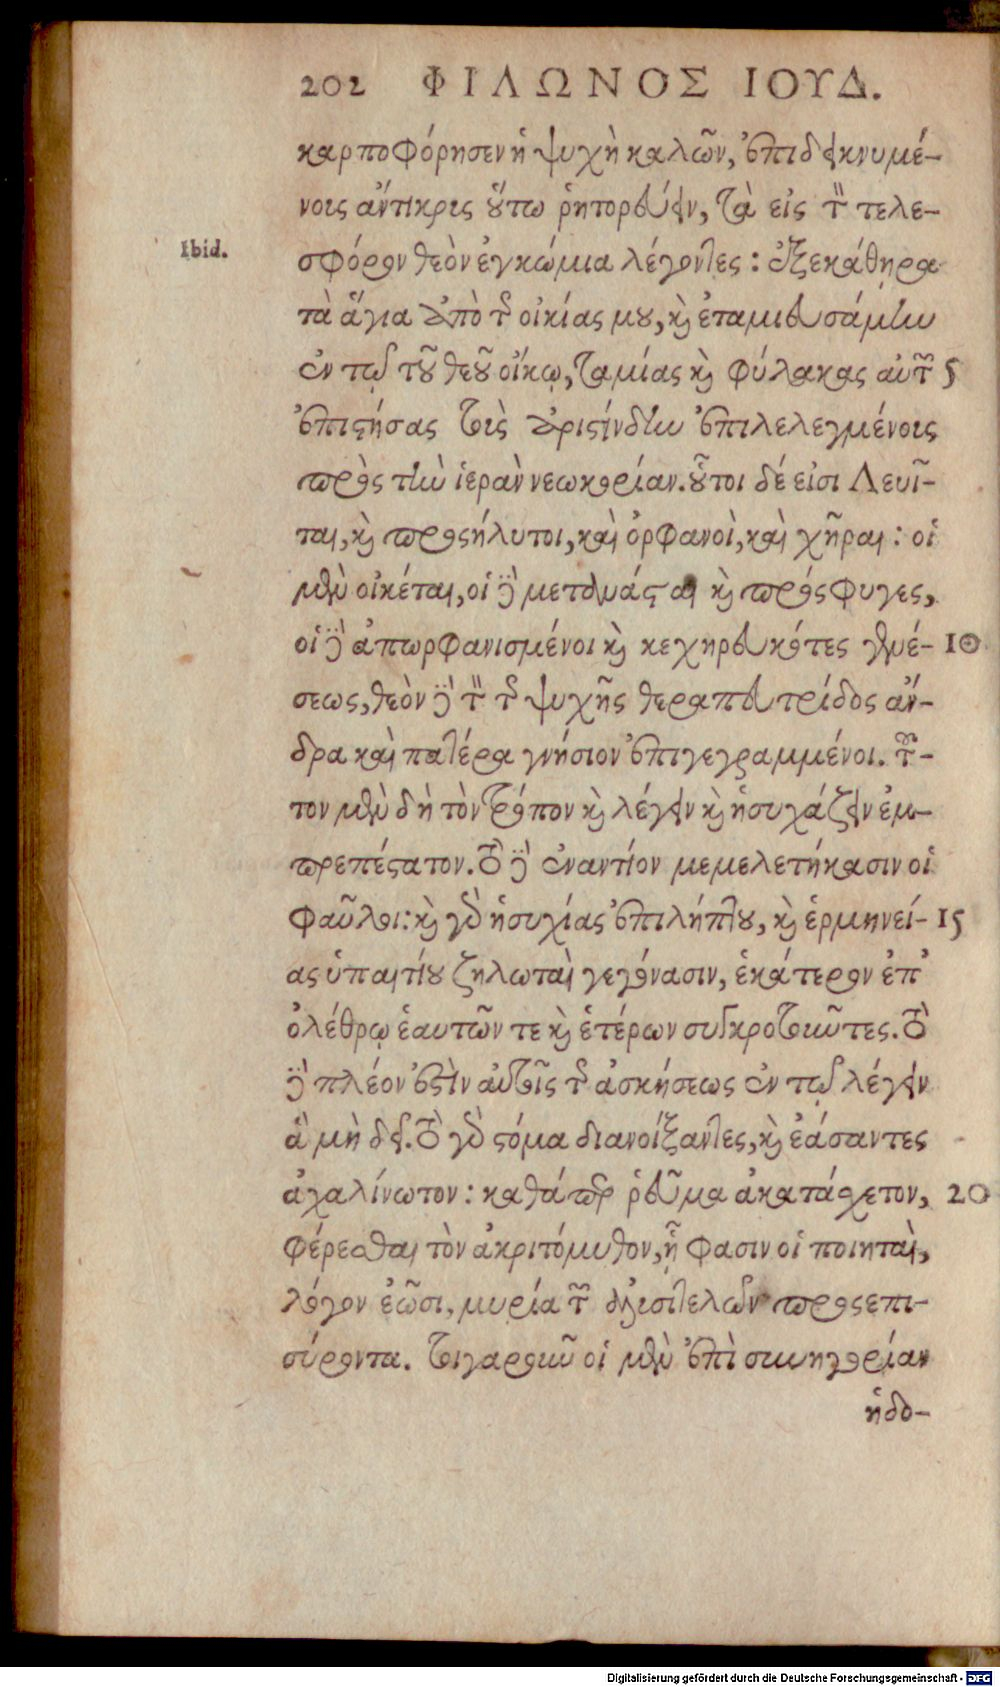 202 ΦΙΛΩΝΟΣ ΙΟΥΔ.
καρποφόρησεν ἡ ψυχὴ καλῶν, ἐπιδεικνυμέ-
νοις ἄντικρις οὕτω ῥητορεύειν, τὰ εἰς τὸν τελε-
Ibid.
σφόρον θεὸν ἐγκώμια λέγοντες : ἐξεκάθηρα
τὰ ἅγια ἀπὸ τῆς οἰκίας μου, καὶ ἐταμιευσάμην
ἐν τῷ τοῦ θεοῦ οἴκῳ, ταμίας καὶ φύλακας αὐτῶν 5
ἐπιστήσας τοὺς ἀριστίνδην ἐπιλελεγμένοις
πρὸς τὴν ἱερὰν νεωκορίαν. οὗτοι δέ εἰσι Λευῖ-
ται, καὶ προσήλυτοι, καὶ ὀρφανοὶ, καὶ χῆραι : οἱ
μὲν οἰκέται, οἱ δὲ μετανάσται καὶ πρόσφυγες,
οἱ δὲ ἀπωρφανισμένοι καὶ κεχηρευκότες γενέ- 10
σεως, θεὸν δὲ τὸν τῆς ψυχῆς θεραπευτρίδος ἄν-
δρα καὶ πατέρα γνήσιον ἐπιγεγραμμένοι. τοῦ-
τον μὲν δὴ τὸν τρόπον καὶ λέγειν καὶ ἡσυχάζειν ἐμ-
πρεπέστατον. τὸ δὲ ἐναντίον μεμελετήκασιν οἱ
φαῦλοι: καὶ γὰρ ἡσυχίας ἐπιλήπτου, καὶ ἑρμηνεί- 15
ας ὑπαιτίου ζηλωταὶ γεγόνασιν, ἑκάτερον ἐπ'
ὀλέθρῳ ἑαυτῶν τε καὶ ἑτέρων συγκροτοῦντες. τὸ
δὲ πλέον ἐστὶν αὐτοῖς τῆς ἀσκήσεως ἐν τῷ λέγειν
ἃ μὴ δεῖ. τὸ γὰρ στόμα διανοίξαντες, καὶ ἐάσαντες
ἀχαλίνωτον : καθάπερ ῥεῦμα ἀκατάσχετον, 20
φέρεσθαι τὸν ἀκριτόμυθον, ᾗ φασιν οἱ ποιηταὶ,
λόγον ἐῶσι, μυρία τῶν ἀλυσιτελῶν προσεπι-
σύροντα. τοιγαροῦν οἱ μὲν ἐπὶ συνηγορίαν
ἡδο-
Digitalisierung gefördert durch die Deutsche Forschungsgemeinschaft - DFG